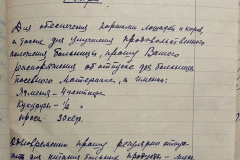 Для обеспечения кормами лошадей и коров,
а также для улучшения продовольственного
положения больницы, прошу Вашего
распоряжения об отпуске для больницы
посевного материала, а именно:
Ячменя - 4 центнера
Кукурузы - ½ "
Проса - 30 кгр.
Одновременно прошу разрешить отпус
тить для питания больных продукты -